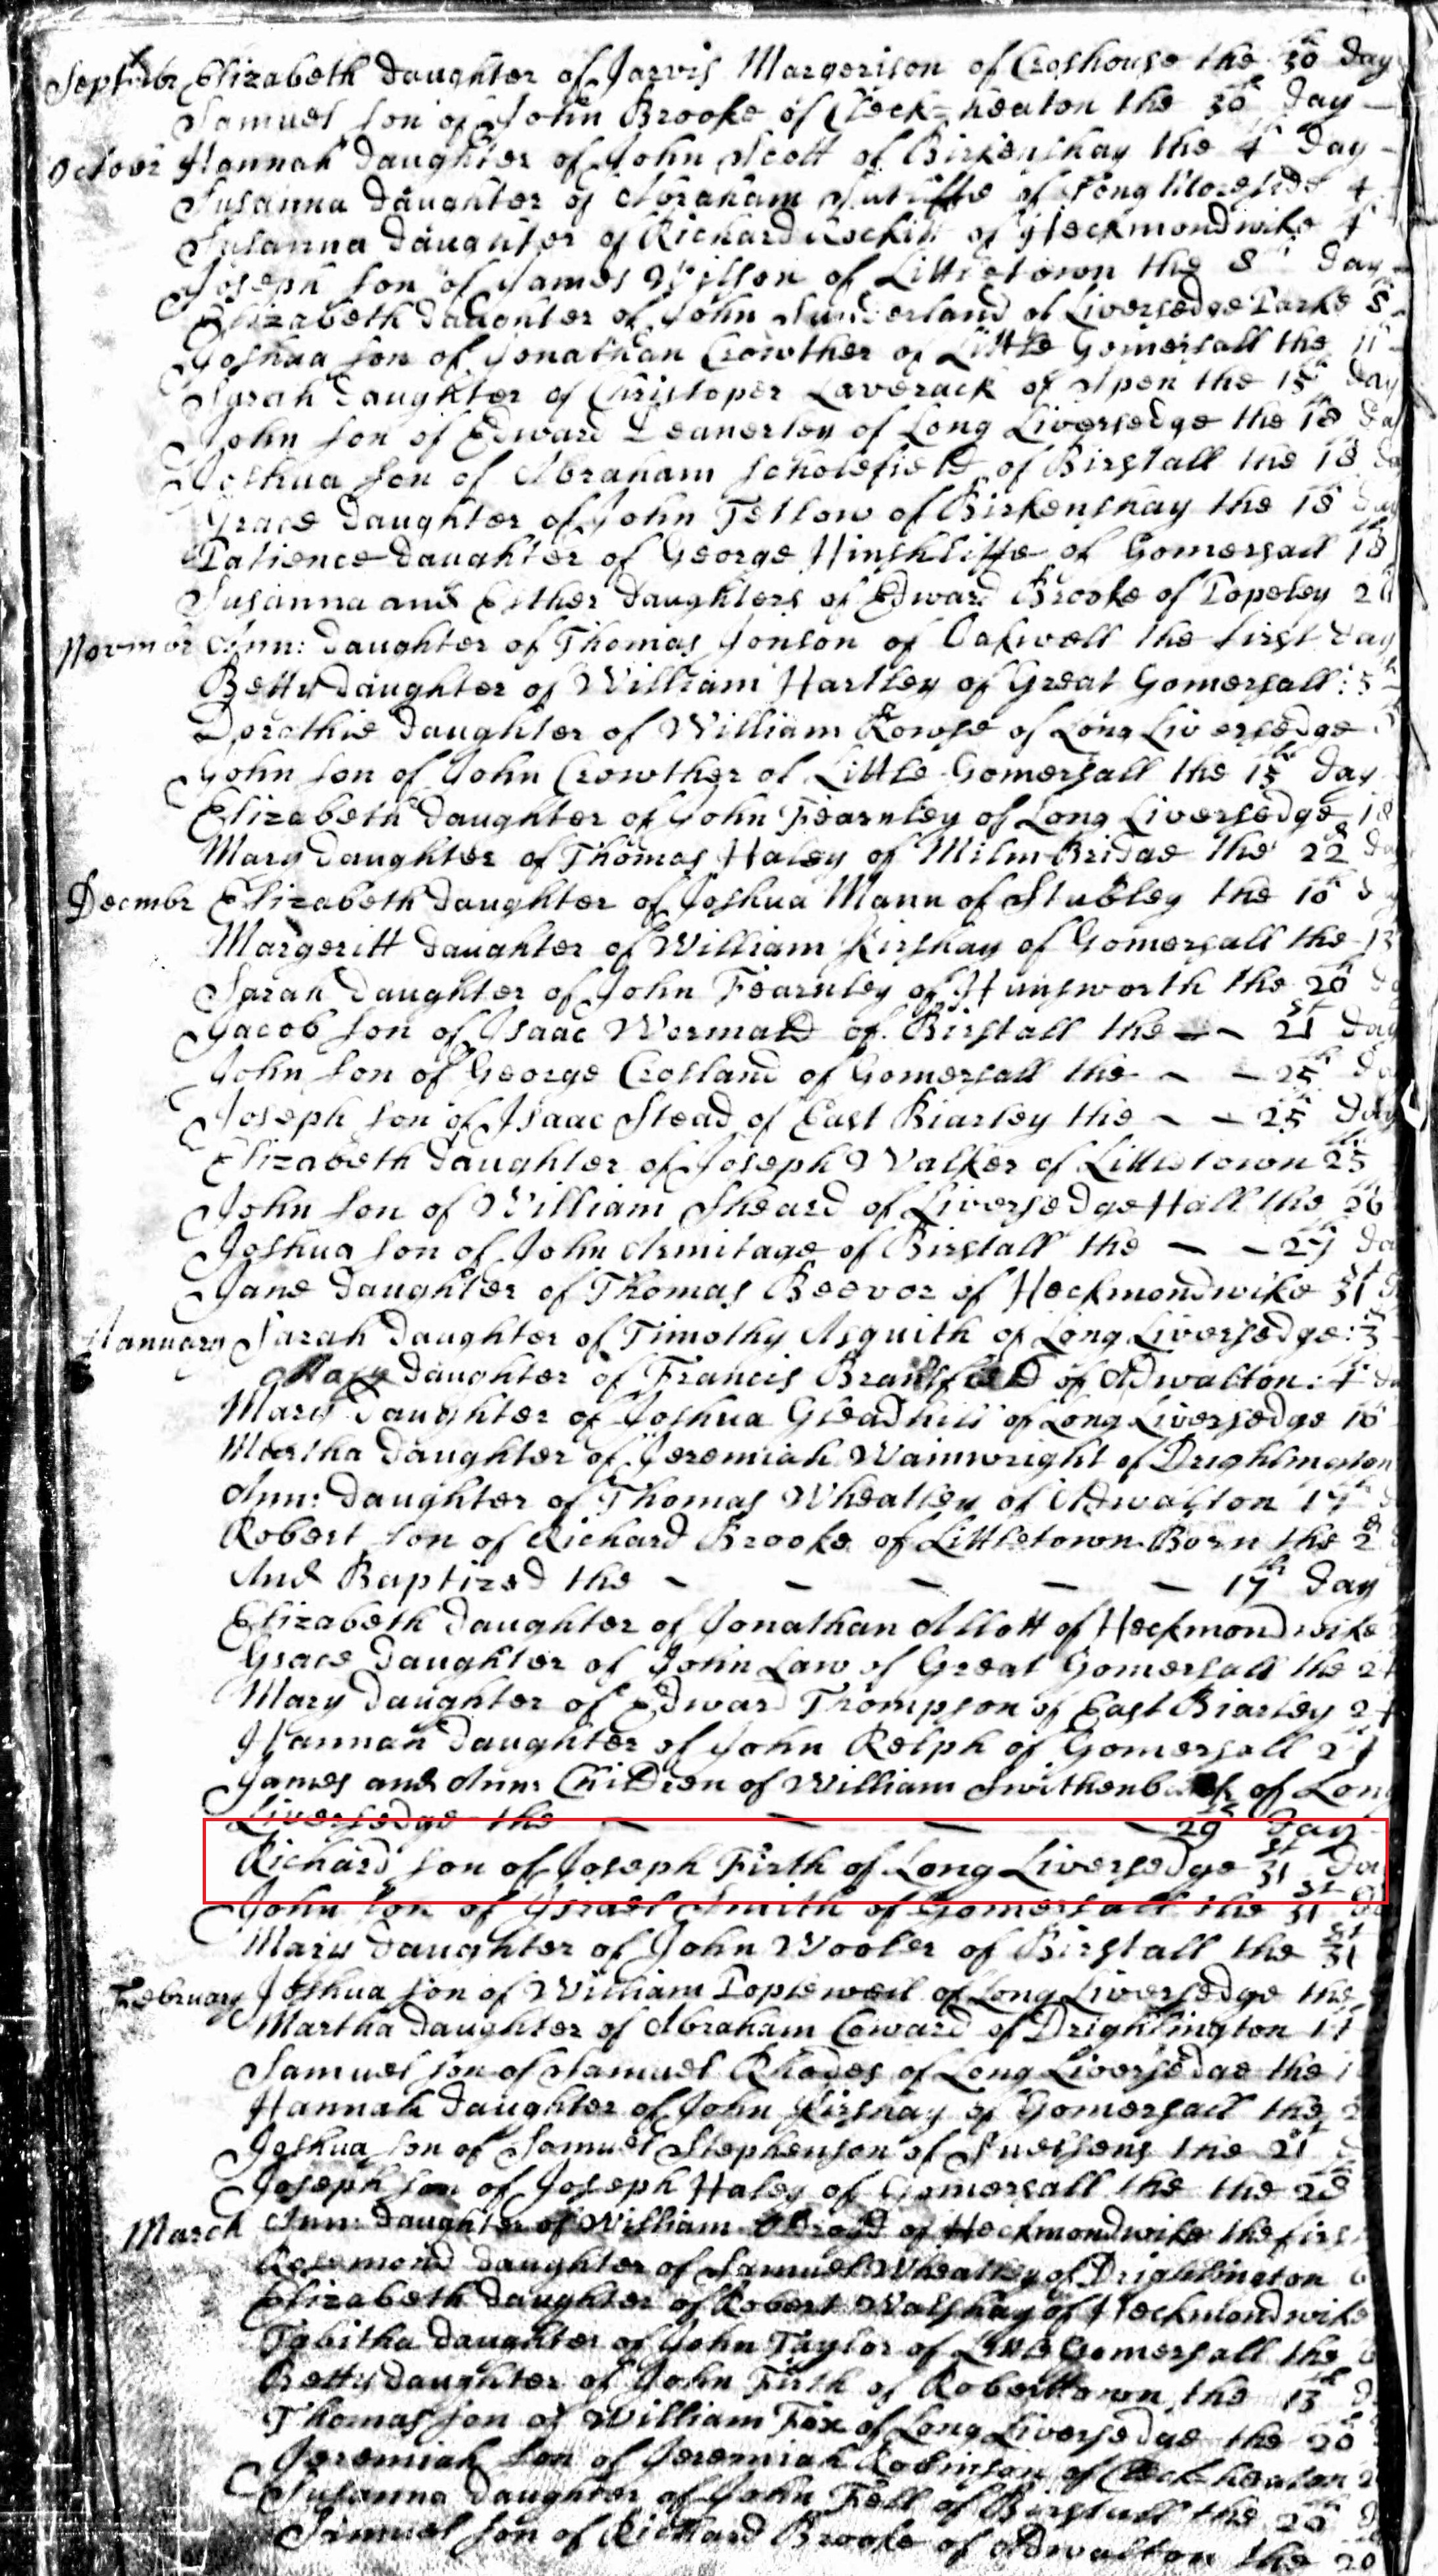 Septmbr Elizabeth Daughter of Jarvis Margerison of Croshouse the 30th Day
Samuel son of John Brooke of Cleck=heaton the 30th Day
October Hannah Daughter of John Scott of Birkenshay the 4th Day
Susanna Daughter of Abraham Sutcliffe of Tong Moreside 4
Susanna Daughter of Richard of Heckmondwike 4
Joseph son of James Wilson of Littletown the 8th Day
Elizabeth Daughter of John Sunderland of Liversedge Parke 8
Joshua son of Jonathan Crowther of Little Gomersall the 11th
Sarah Daughter of Christoper Laverack of Spen the 15th Day
John son of Edward Deanerley of Long Liversedge the 18th
Joshua son of Abraham Scholefield of Birstall the 18th
Grace Daughter of John Tetlow of Birkenshay the 18
Patience Daughter of George Hinchliffe of Gomersall 18th
Susanna and Esther Daughters of Edward Brooke of Popeley
Novmbr Ann: Daughter of Thomas Jonson of Oakwell the first Day
Betty Daughter of William Hartley of Great Gomersall: 5th
Dorothie Daughter of William Rowse of Long Liversedge
John son of John Crowther of Little Gomersall the 15th Day
Elizabeth Daughter of John Fearnley of Long Liversedge 18
Mary Daughter of Thomas Haley of Milnbridge the 22d
Decmbr Elizabeth Daughter of Joshua Mann of Stubley the 10th
Margeritt Daughter of William Kirshay of Gomersall the 13
Sarah Daughter of John Fearnley of Hunsworth the 20th
Jacob son of Isaac Wormald of Birstall the - - 21st Day
John son of George Crosland of Gomersall the - - 25th
Joseph son of Isaac Stead of East Biarley the - - 25th Day
Elizabeth Daughter of Joseph Walker of Littletown 25th
John son of William Sheard of Liversedge Hall the 26th
Joshua son of John Armitage of Birstall the - - 27th
Jane Daughter of Thomas Beevor of Heckmondwike 31st
January Sarah Daughter of Timothy Asquith of Long Liversedge: 3
Mary Daughter of Francis of Adwalton: 4
Mary Daughter of Joshua Gleadhill of Long Liversedge 10
Martha Daughter of Jeremiah Wainwright of Drighlington
Ann: Daughter of Thomas Wheatley of Adwalton 17th
Robert son of Richard Brooke of Littletown Born the 2d
And Baptized the - - - - - 17th Day
Elizabeth Daughter of Jonathan Allott of Heckmondwike
Grace Daughter of John Law of Great Gomersall the 24
Mary Daughter of Edward Thompson of East Biarley 24
Hannah Daughter of John Relph of Gomersall 24
James and Ann: Children of William of Long
Liversedge the - - - - 29th Day
Richard son of Joseph Firth of Long Liversedge 31st Da
John son of Israel Smith of Gomersall the 31st
Mary Daughter of John Wooler of Birstall the 31st
February Joshua son of William Poplewell of Long Liversedge the
Martha Daughter of Abraham Coward of Drighlington 14
Samuel son of Samuel Rhodes of Long Liversedge the
Hannah Daughter of John Kirshay of Gomersall the
Joshua son of Samuel Stephenson of the 21
Joseph son of Joseph Haley of Gomersall the the 28th
March Ann: Daughter of William of Heckmondwike the first
Rosemond Daughter of Samuel Wheatley of Drighlington 6
Elizabeth Daughter of Robert Walshay of Heckmondwike
Tabitha Daughter of John Taylor of Little Gomersall the
Betty Daughter of John Firth of Roberttown the 13th
Thomas son of William Fox of Long Liversedge the 20
Jeremiah son of Jeremiah Robinson of Cleckheaton
Susanna Daughter of John Fell of Birstall the 20th
Samuel son of Richard Brooke of Adwalton the 20